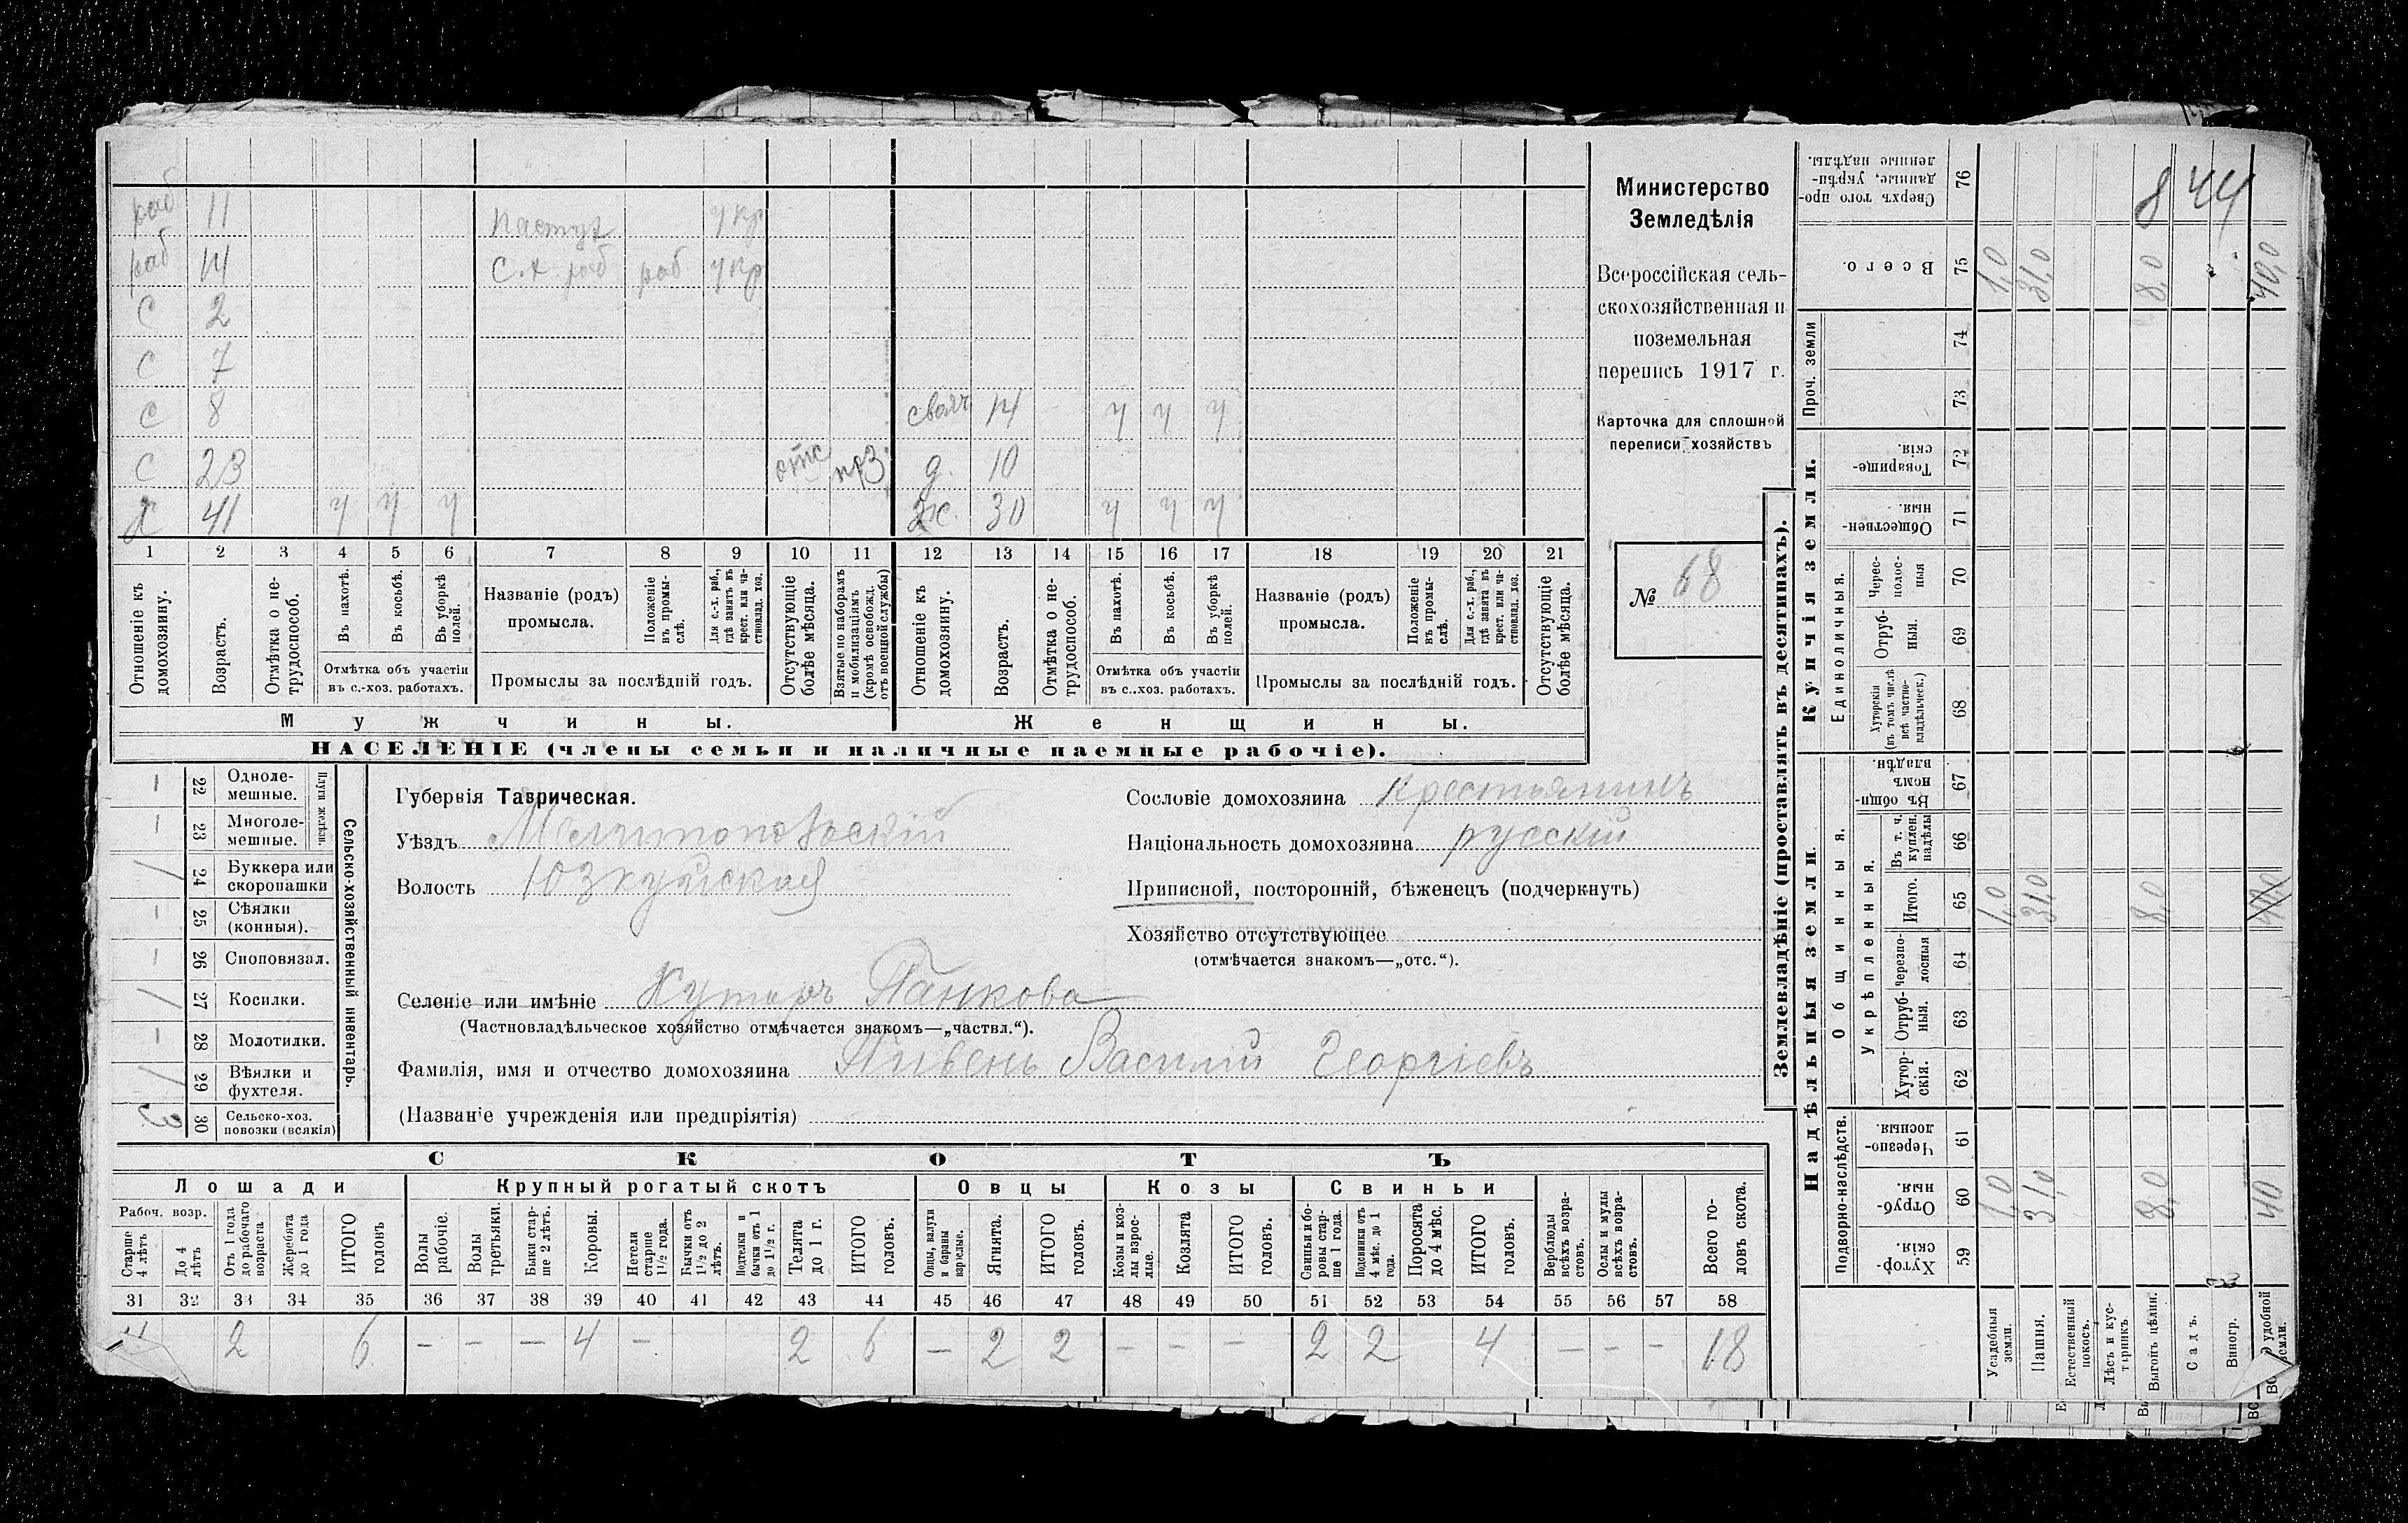 раб 11 пастух у кр
раб 14 С.х раб раб у кр
С 2
С 7
С 8 свояч 14 ч ч ч
С 23 отс прз д. 10
Х 41 ч ч ч ж. 30 ч ч ч
1 2 3 4 5 6 7 8 9 10 11 12 13 14 15 16 17 18 19 20 21
Отношеніе къ домохозяину.
Возрастъ.
Отмѣтка о не-трудоспособ.
Въ пахотѣ.
Въ косьбѣ.
Въ уборкѣ полей.
Отмѣтка объ участіи въ с.-хоз. работахъ.
Названіе (родъ) промысла.
Положеніе въ промы-слѣ.
Для с.-х. раб., гдѣ занятъ въ крест. или ча-стновлад. хоз.
Промыслы за послѣдній годъ.
Отсутствующіе болѣе мѣсяца.
Взятые по наборамъ и мобилизаціямъ (кромѣ освобожд. отъ военной службы)
Отношеніе къ домохозяину.
Возрастъ.
Отмѣтка о не-трудоспособ.
Въ пахотѣ.
Въ косьбѣ.
Въ уборкѣ полей.
Отмѣтка объ участіи въ с..хоз. работахъ.
Названіе (родъ) промысла.
Положеніе въ промы-слѣ.
Для с.-х. раб., гдѣ занята въ крест. или ча-стновлад. хоз.
Промыслы за послѣдній годъ.
Отсутствующіе болѣе мѣсяца.
Мужчины.
Женщины.
НАСЕЛЕНІЕ (члены семьи и наличные наемные рабочіе).
Министерство
Земледѣлія
Всероссійская сель-
скохозяйственная и
поземельная
перепись 1917 г.
Карточка для сплошной
переписи хозяйствъ
№ 68
Сельско-хозяйственный инвентарь.
Плуги желѣзн.
— 22 Одноле-мешные.
— 23 Многоле-мешные.
/ 24 Буккера или скоропашки
— 25 Сѣялки (конныя).
— 26 Сноповязал.
/ 27 Косилки.
— 28 Молотилки.
/ 29 Вѣялки и фухтеля.
3 30 Сельско-хоз. повозки (всякія)
Губернія Таврическая.
Уѣздъ Мелитопольскій
Волость Юзкуйская
Сословіе домохозяина крестьянинъ
Національность домохозяина русскій
Приписной, посторонній, бѣженецъ (подчеркнуть)
Хозяйство отсутствующее
(отмѣчается знакомъ—„отс.“).
Селеніе или имѣніе Хуторъ Панкова
(Частновладѣльческое хозяйство отмѣчается знакомъ—„частвл.“).
Фамилія, имя и отчество домохозяина Пивень Василій Георгіевъ
(Названіе учрежденія или предпріятія)
СКОТЪ
Лошади
Крупный рогатый скотъ
Овцы
Козы
Свиньи
Рабоч. возр.
Старше 4 лѣтъ
До 4 лѣтъ
Отъ 1 года до рабочаго возраста
Жеребята до 1 года
ИТОГО головъ
Волы рабочіе.
Волы третьяки.
Быки стар-ше 2 лѣтъ.
Коровы.
Нетели старше 1½ года.
Бычки отъ 1½ до 2 лѣтъ.
Подтелки и бычки отъ 1 до 1½ г.
Телята до 1 г.
ИТОГО головъ.
Овцы, валухи и бараны взрослые.
Ягнята.
ИТОГО головъ.
Козы и коз-лы взрос-лые.
Козлята
ИТОГО головъ.
Свиньи и бо-ровы стар-ше 1 года.
Подсвинки отъ 4 мѣс. до 1 года.
Поросята до 4 мѣс.
ИТОГО головъ.
Верблюды всѣхъ возра-стовъ.
Ослы и мулы всѣхъ возра-стовъ.
Всего го-ловъ скота.
31 32 33 34 35 36 37 38 39 40 41 42 43 44 45 46 47 48 49 50 51 52 53 54 55 56 57 58
4 2 6 — — — 4 — 2 6 — 2 2 — — — 2 2 4 — — — 18
Землевладѣніе (проставлять въ десятинахъ).
Надѣльныя земли.
Купчія земли.
Проч. земли
Подворно-наслѣдств.
Общинныя.
Укрѣпленныя.
Единоличныя.
Сверхъ того про-данные, укрѣп-ленные надѣлы. 76 8 44
Всего. 75 1,0 31,0 8,0 40,0
74
73
Товарище-скія 72
Обществен-ныя. 71
Черес-полос-ныя 70
Отруб-ныя. 69
Хуторскія (въ томъ числѣ всѣ частно-владѣльческ.) 68
Въ общи-номъ владѣн. 67
Въ т. ч. куплен. надѣлы 66
Итого. 65 1,0 31,0 8,0 40,0
Черезпо-лосныя 64
Отруб-ныя. 63
Хутор-скія. 62
Черезпо-лосныя. 61
Отруб-ныя. 60 1,0 31,0 8,0 40
Хутор-скія. 59
Усадебныя земли.
Пашня.
Естественный покосъ.
Лѣсъ и кус-тарникъ.
Выгонъ цѣлин.
Садъ.
Виногр.
удобной земли.